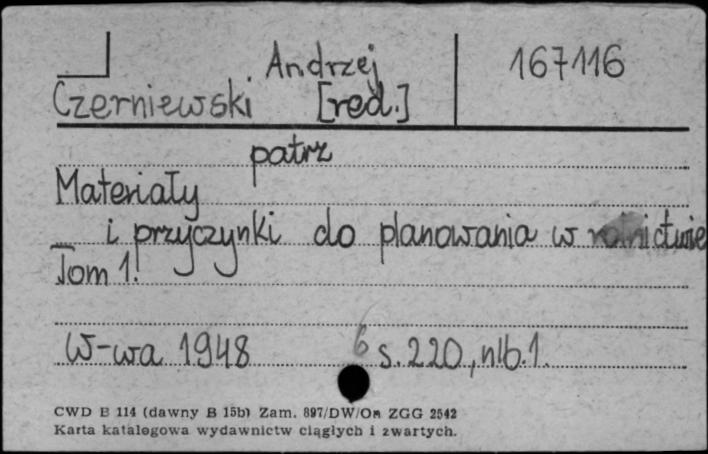 Andrzej 167116
Czerniewski [red.]
patrz
Materiały
i przyczynki do planowania w rolnictwie
Tom 1.
W-wa 1948 6 s. 220, nlb. 1.
CWD B 114 (dawny B 15b) Zam. 897/DW/On ZGG 2542
Karta katalogowa wydawnictw ciągłych i zwartych.